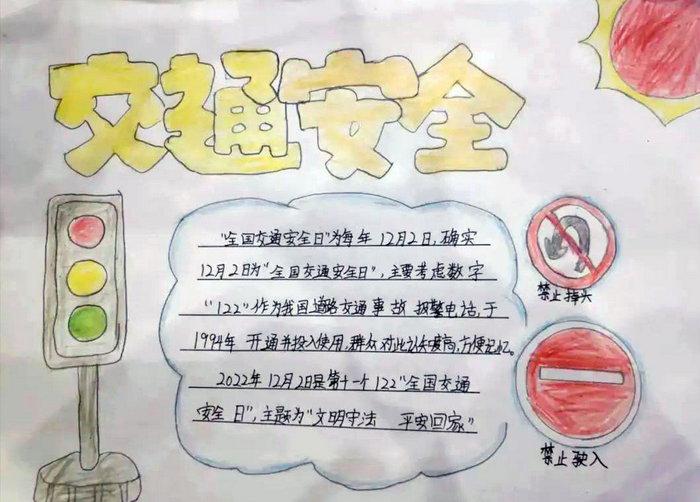 交通安全
“全国交通安全日”为每年12月2日,确实
12月2日为“全国交通安全日”,主要考虑数字
“122”作为我国道路交通事故报警电话,于
1994年开通并投入使用,群众对此认知度高,方便记忆。
2022年12月2日是第十一个122“全国交通
安全日”,主题为“文明守法 平安回家”
禁止掉头
禁止驶入